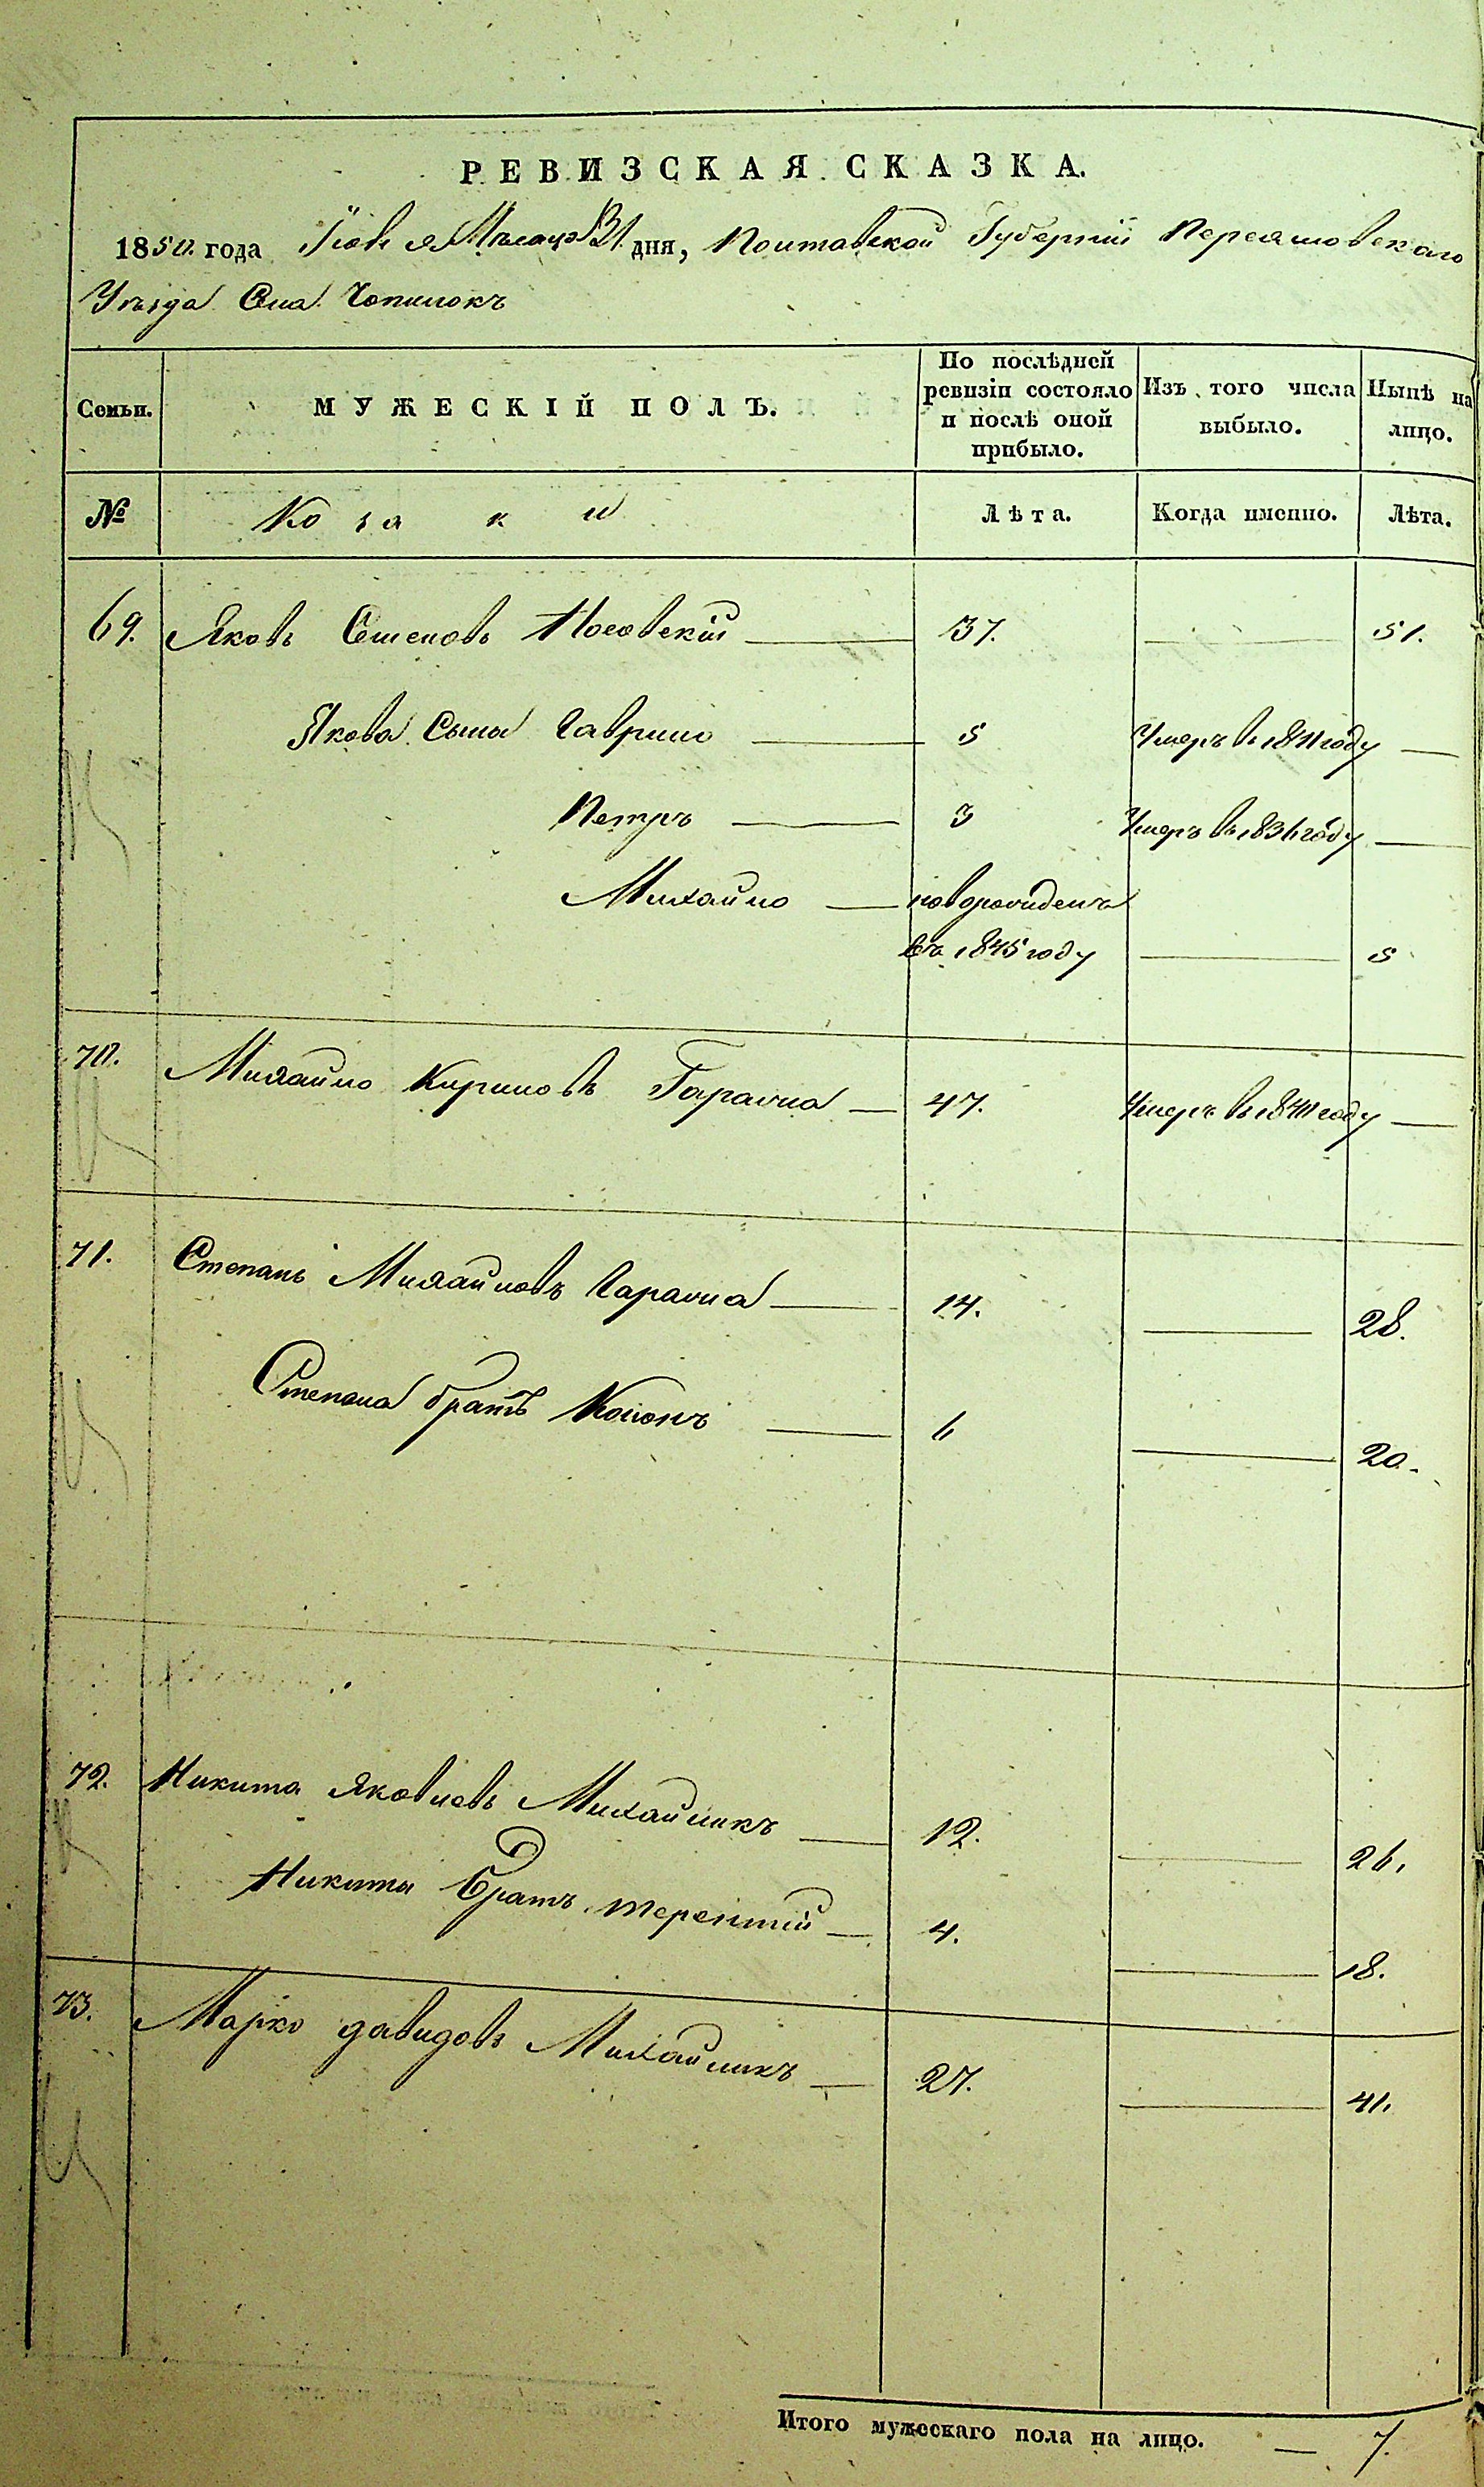 РЕВИЗСКАЯ СКАЗКА.
1850. года Іюля Мѣсяца 31. дня, Полтавской Губерніи Переяловскаго
Уѣзда Села Чопилокъ
Семьи.
МУЖЕСКІЙ ПОЛЪ.
По послѣдней ревизіи состояло и послѣ оной прибыло.
Изъ того числа выбыло.
Нынѣ на лицо.
№ Козаки Лѣта. Когда именно. Лѣта.
69. Яковъ Семеновъ Носовскій 37. 51.
Якова Сына Гаврило 5 Умеръ въ 1841 году
Петръ 3 Умеръ въ 1836 году
Михайло новорожденъ
въ 1845 году 5
70. Михайло Кириловъ Гаража 47. Умеръ въ 1841 году
71. Степанъ Михайловъ Гаража 14. 28.
Степана братъ Кононъ 6 20.
72. Никита Яковлевъ Михайликъ 12. 26.
Никиты братъ терентій 4. 18.
73. Марко давидовъ Михайликъ 27. 41.
Итого мужескаго пола на лицо. 7.